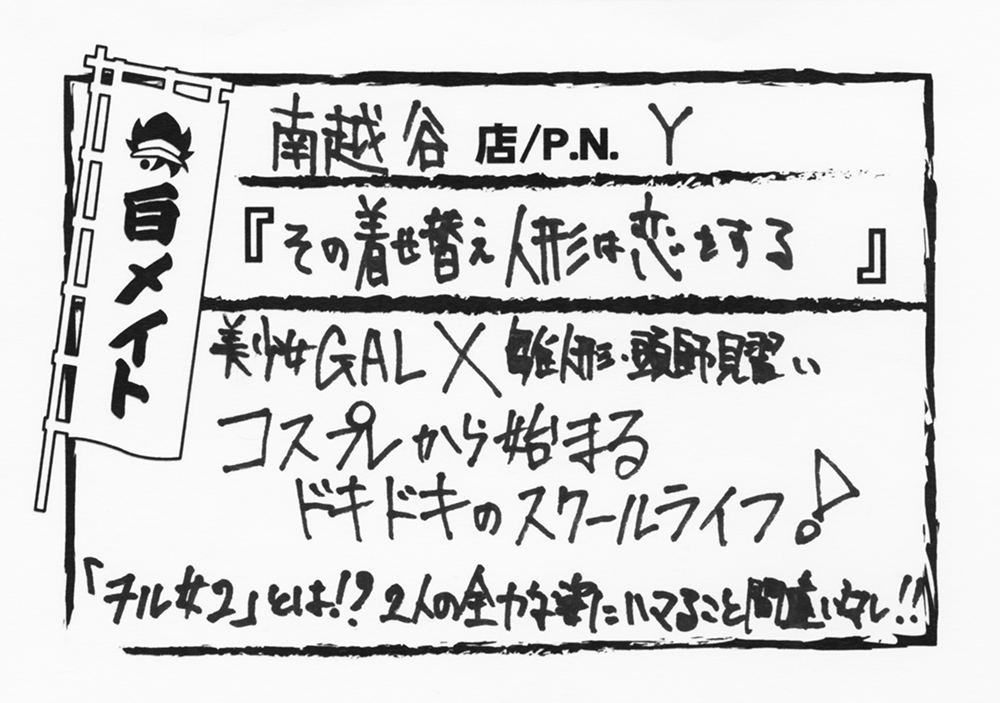 南越谷 店/P.N. Y
自メイト
『その着せ替え人形は恋をする』
美少女GAL X 雛人形・頭師見習い
コスプレから始まる
ドキドキのスクールライフ!
「ヌル女2」とは!? 2人の全力な姿にハマること間違いなし!!